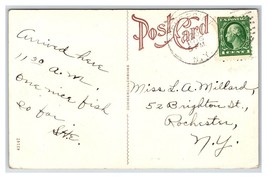 Post Card
N.Y.
Arrived here
11:30 A.M.
one nice fish
so far.
S.H.E.
Miss L. A. Millard,
52 Brighton St.,
Rochester,
N.Y.